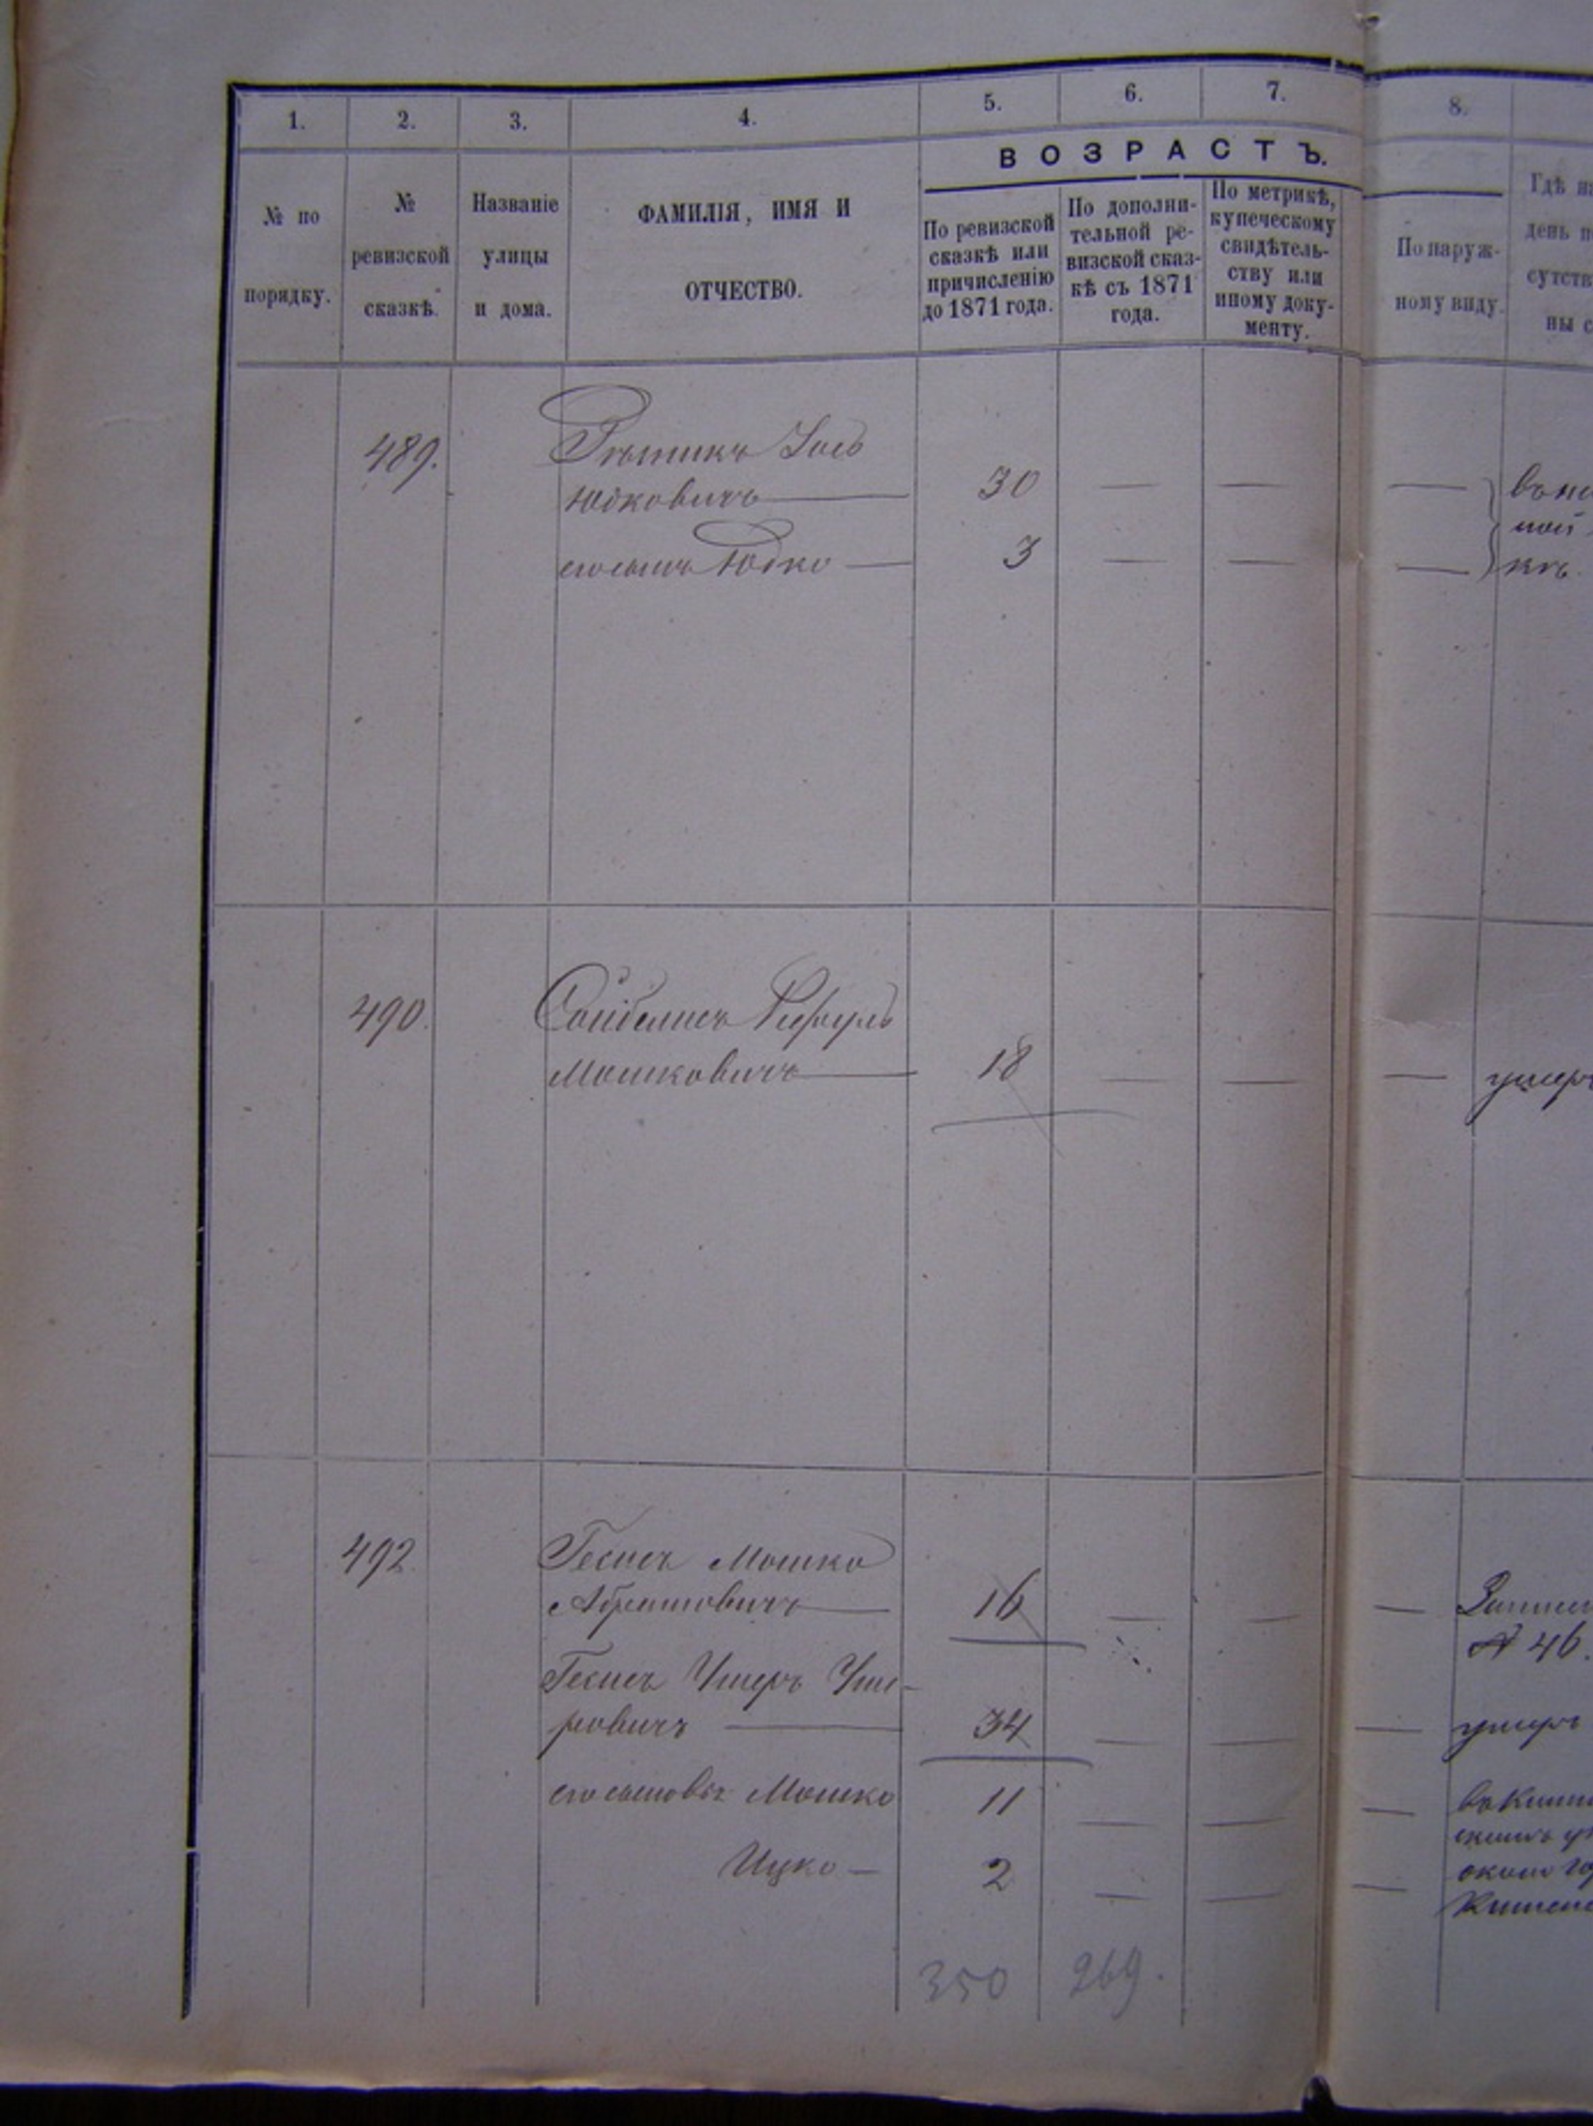 1. 2. 3. 4. 5. 6. 7. 8.
ВОЗРАСТЪ.
№ по
порядку.
№
ревизской
сказкѣ.
Названіе
улицы
и дома.
ФАМИЛІЯ, ИМЯ И
ОТЧЕСТВО.
По ревизской
сказкѣ или
причисленію
до 1871 года.
По дополни-
тельной ре-
визской сказ-
кѣ съ 1871
года.
По метрикѣ,
купеческому
свидѣтель-
ству или
иному доку-
менту.
По наруж-
ному виду.
Гдѣ
день
сутств
ны с
489.
Юдковичъ — 30 — — —
его сынъ Юдко — 3 — — —
490.
Мошковичъ — 18 — — — умеръ
492
Гескисъ Мошко
Абрамовичъ — 16 — — —
№ 46.
Ушеръ Уше-
ровичъ — 34 — — — умеръ
его сыновья Мошко 11 — — —
Ицко — 2 — — —
около
350 269.